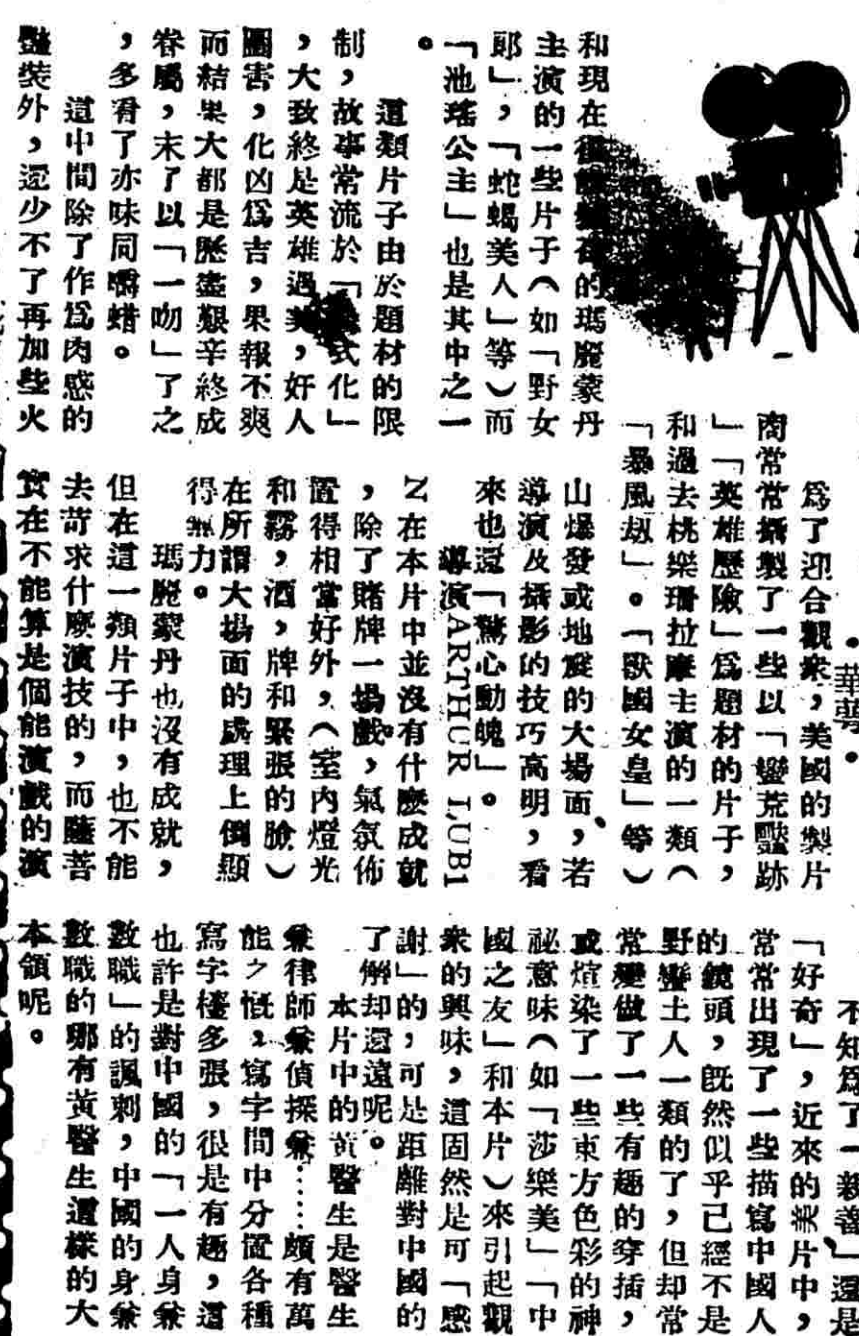 •華蕚•
爲了迎合觀衆,美國的製片
商常常攝製了一些以「蠻荒豔跡
」「英雄歷險」爲題材的片子,
和過去桃樂珊拉摩主演的一類(
「暴風刼」。「獸國女皇」等)
和現在的瑪麗蒙丹
主演的一些片子(如「野女
郎」,「蛇蝎美人」等)而
「池瑤公主」也是其中之一
。
這類片子由於題材的限
制,故事常流於「式化」
,大致終是英雄遇美,好人
圖害,化凶爲吉,果報不爽
而結果大都是歷盡艱辛終成
眷屬,末了以「一吻」了之
,多看了亦味同嚼蜡。
這中間除了作爲肉惑的
豔裝外,還少不了再加些火
山爆發或地震的大場面、若
導演及攝影的技巧高明,看
來也還「驚心動魄」。
導演ARTHUR LUBI
Z在本片中並沒有什麽成就
,除了賭牌一場戲,氣氛佈
置得相當好外,(室內燈光
和霧,酒,牌和緊張的臉)
在所謂大場面的處理上倒顯
得無力。
瑪麗蒙丹也沒有成就,
但在這一類片子中,也不能
去苛求什麽演技的,而薩菩
實在不能算是個能演戲的演
不知爲了「親善」還是
「好奇」,近來的美片中,
常常出現了一些描寫中國人
的鏡頭,旣然似乎已經不是
野蠻土人一類的了,但却常
常變做了一些有趣的穿插,
或煊染了一些東方色彩的神
祕意味(如「莎樂美」「中
國之友」和本片)來引起觀
衆的興味,這固然是可「感
謝」的,可是距離對中國的
了解却還遠呢。
本片中的黃醫生是醫生
兼律師兼偵探兼……頗有萬
能之慨,寫字間中分置各種
寫字檯多張,很是有趣,這
也許是對中國的「一人身兼
數職」的諷刺,中國的身兼
數職的哪有黃醫生這樣的大
本領呢。